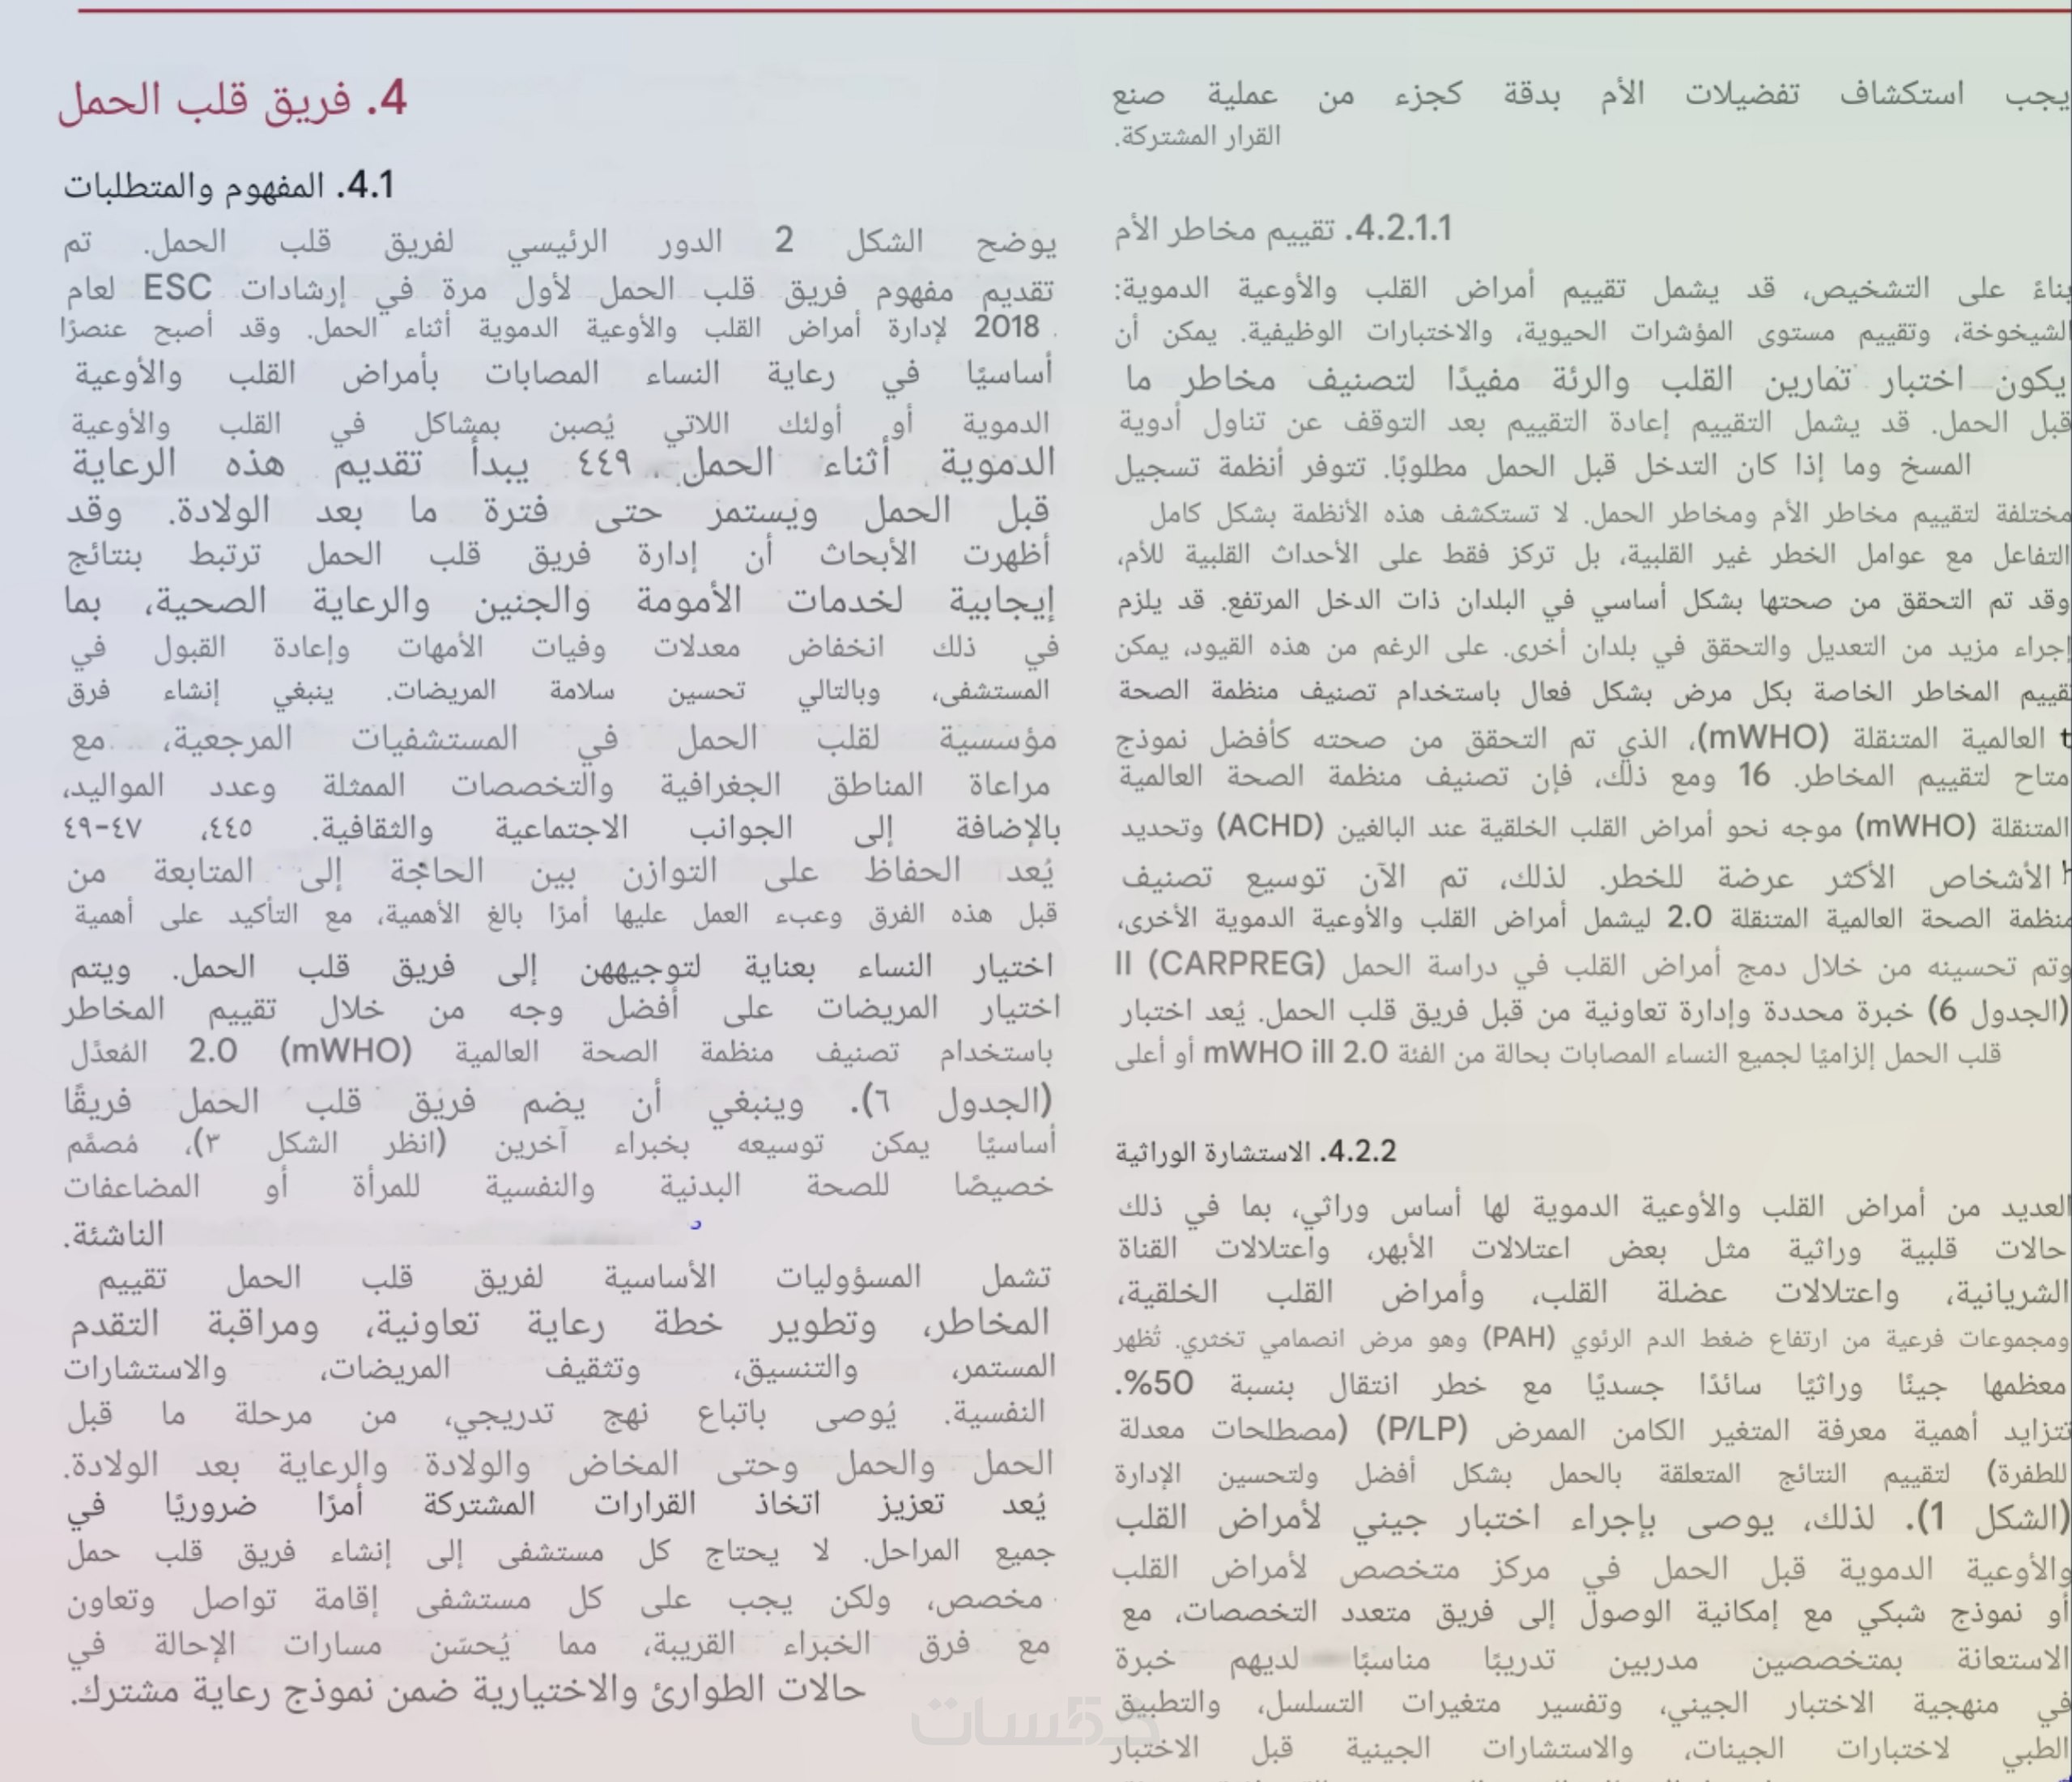 4. فريق قلب الحمل
4.1. المفهوم والمتطلبات
يوضح الشكل 2 الدور الرئيسي لفريق قلب الحمل. تم
تقديم مفهوم فريق قلب الحمل لأول مرة في إرشادات ESC لعام
2018 لإدارة أمراض القلب والأوعية الدموية أثناء الحمل. وقد أصبح عنصرًا
أساسيًا في رعاية النساء المصابات بأمراض القلب والأوعية
الدموية أو أولئك اللاتي يُصبن بمشاكل في القلب والأوعية
الدموية أثناء الحمل. ٤٤٩ يبدأ تقديم هذه الرعاية
قبل الحمل ويستمر حتى فترة ما بعد الولادة. وقد
أظهرت الأبحاث أن إدارة فريق قلب الحمل ترتبط بنتائج
إيجابية لخدمات الأمومة والجنين والرعاية الصحية، بما
في ذلك انخفاض معدلات وفيات الأمهات وإعادة القبول في
المستشفى، وبالتالي تحسين سلامة المريضات. ينبغي إنشاء فرق
مؤسسية لقلب الحمل في المستشفيات المرجعية، مع
مراعاة المناطق الجغرافية والتخصصات الممثلة وعدد المواليد،
بالإضافة إلى الجوانب الاجتماعية والثقافية. ٤٤٥، ٤٧-٤٩
يُعد الحفاظ على التوازن بين الحاجة إلى المتابعة من
قبل هذه الفرق وعبء العمل عليها أمرًا بالغ الأهمية، مع التأكيد على أهمية
اختيار النساء بعناية لتوجيههن إلى فريق قلب الحمل. ويتم
اختيار المريضات على أفضل وجه من خلال تقييم المخاطر
باستخدام تصنيف منظمة الصحة العالمية (mWHO) 2.0 المُعدَّل
(الجدول ٦). وينبغي أن يضم فريق قلب الحمل فريقًا
أساسيًا يمكن توسيعه بخبراء آخرين (انظر الشكل ٣)، مُصمَّم
خصيصًا للصحة البدنية والنفسية للمرأة أو المضاعفات
الناشئة.
تشمل المسؤوليات الأساسية لفريق قلب الحمل تقييم
المخاطر، وتطوير خطة رعاية تعاونية، ومراقبة التقدم
المستمر، والتنسيق، وتثقيف المريضات، والاستشارات
النفسية. يُوصى باتباع نهج تدريجي، من مرحلة ما قبل
الحمل والحمل وحتى المخاض والولادة والرعاية بعد الولادة.
يُعد تعزيز اتخاذ القرارات المشتركة أمرًا ضروريًا في
جميع المراحل. لا يحتاج كل مستشفى إلى إنشاء فريق قلب حمل
مخصص، ولكن يجب على كل مستشفى إقامة تواصل وتعاون
مع فرق الخبراء القريبة، مما يُحسّن مسارات الإحالة في
حالات الطوارئ والاختيارية ضمن نموذج رعاية مشترك.
يجب استكشاف تفضيلات الأم بدقة كجزء من عملية صنع
القرار المشتركة.
4.2.1.1. تقييم مخاطر الأم
بناءً على التشخيص، قد يشمل تقييم أمراض القلب والأوعية الدموية:
الشيخوخة، وتقييم مستوى المؤشرات الحيوية، والاختبارات الوظيفية. يمكن أن
يكون اختبار تمارين القلب والرئة مفيدًا لتصنيف مخاطر ما
قبل الحمل. قد يشمل التقييم إعادة التقييم بعد التوقف عن تناول أدوية
المسخ وما إذا كان التدخل قبل الحمل مطلوبًا. تتوفر أنظمة تسجيل
مختلفة لتقييم مخاطر الأم ومخاطر الحمل. لا تستكشف هذه الأنظمة بشكل كامل
التفاعل مع عوامل الخطر غير القلبية، بل تركز فقط على الأحداث القلبية للأم،
وقد تم التحقق من صحتها بشكل أساسي في البلدان ذات الدخل المرتفع. قد يلزم
إجراء مزيد من التعديل والتحقق في بلدان أخرى. على الرغم من هذه القيود، يمكن
تقييم المخاطر الخاصة بكل مرض بشكل فعال باستخدام تصنيف منظمة الصحة
العالمية المتنقلة (mWHO)، الذي تم التحقق من صحته كأفضل نموذج
متاح لتقييم المخاطر. 16 ومع ذلك، فإن تصنيف منظمة الصحة العالمية
المتنقلة (mWHO) موجه نحو أمراض القلب الخلقية عند البالغين (ACHD) وتحديد
الأشخاص الأكثر عرضة للخطر. لذلك، تم الآن توسيع تصنيف
منظمة الصحة العالمية المتنقلة 2.0 ليشمل أمراض القلب والأوعية الدموية الأخرى،
وتم تحسينه من خلال دمج أمراض القلب في دراسة الحمل (CARPREG) II
(الجدول 6) خبرة محددة وإدارة تعاونية من قبل فريق قلب الحمل. يُعد اختبار
قلب الحمل إلزاميًا لجميع النساء المصابات بحالة من الفئة mWHO ill 2.0 أو أعلى
4.2.2. الاستشارة الوراثية
العديد من أمراض القلب والأوعية الدموية لها أساس وراثي، بما في ذلك
حالات قلبية وراثية مثل بعض اعتلالات الأبهر، واعتلالات القناة
الشريانية، واعتلالات عضلة القلب، وأمراض القلب الخلقية،
ومجموعات فرعية من ارتفاع ضغط الدم الرئوي (PAH) وهو مرض انصمامي تخثري. تُظهر
معظمها جينًا وراثيًا سائدًا جسديًا مع خطر انتقال بنسبة 50%.
تتزايد أهمية معرفة المتغير الكامن الممرض (P/LP) (مصطلحات معدلة
للطفرة) لتقييم النتائج المتعلقة بالحمل بشكل أفضل ولتحسين الإدارة
(الشكل 1). لذلك، يوصى بإجراء اختبار جيني لأمراض القلب
والأوعية الدموية قبل الحمل في مركز متخصص لأمراض القلب
أو نموذج شبكي مع إمكانية الوصول إلى فريق متعدد التخصصات، مع
الاستعانة بمتخصصين مدربين تدريبًا مناسبًا لديهم خبرة
في منهجية الاختبار الجيني، وتفسير متغيرات التسلسل، والتطبيق
الطبي لاختبارات الجينات، والاستشارات الجينية قبل الاختبار
خمسات